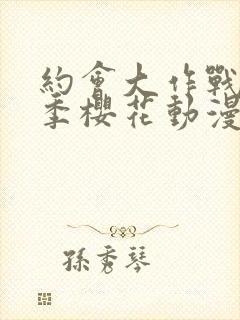 約會大作戰
季櫻花動漫
孫秀琴